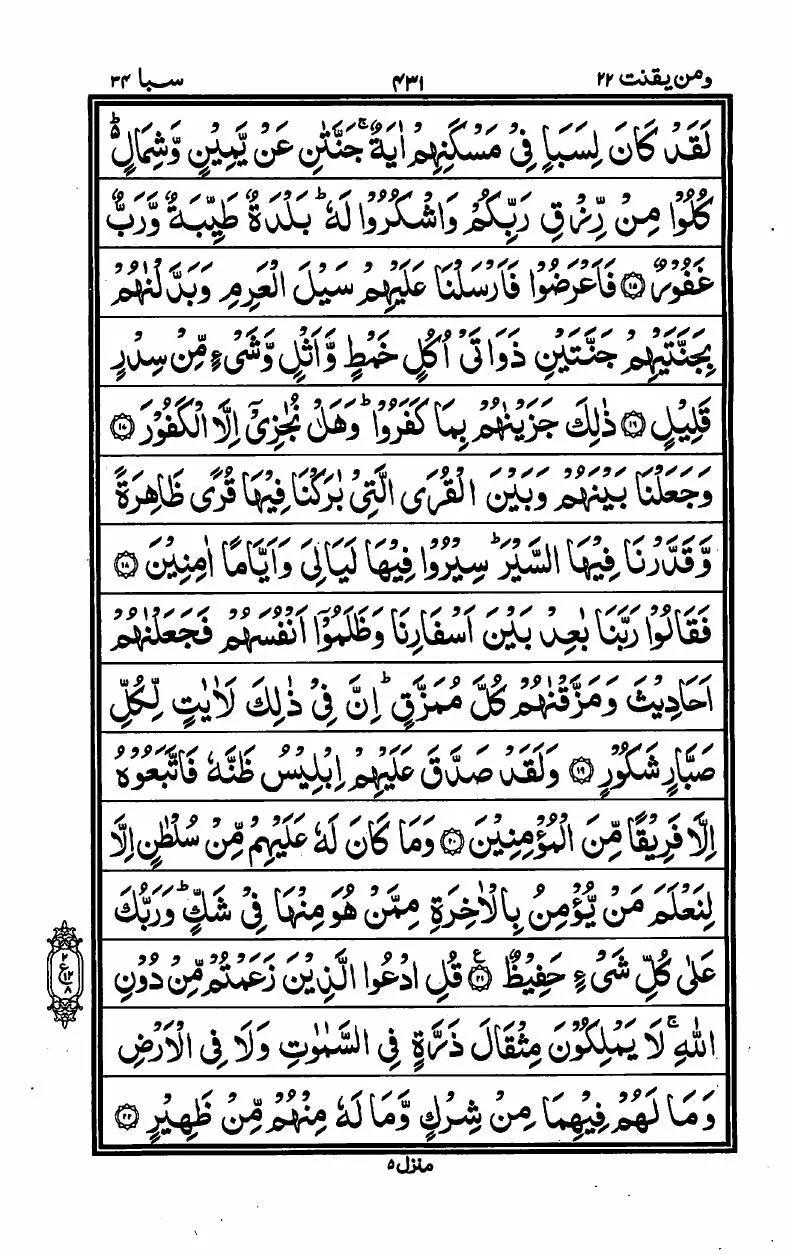 ومن يقنت ۲۲ ۴۳۱ سبا ۳۴
لَقَدْ كَانَ لِسَبَاٍ فِیْ مَسْكَنِهِمْ اٰیَةٌ ۚ جَنَّتٰنِ عَنْ یَّمِیْنٍ وَّشِمَالٍ ؕ۬
كُلُوْا مِنْ رِّزْقِ رَبِّكُمْ وَاشْكُرُوْا لَهٗ ؕ بَلْدَةٌ طَیِّبَةٌ وَّرَبٌّ
غَفُوْرٌ ۝۱۵ فَاَعْرَضُوْا فَاَرْسَلْنَا عَلَیْهِمْ سَیْلَ الْعَرِمِ وَبَدَّلْنٰهُمْ
بِجَنَّتَیْهِمْ جَنَّتَیْنِ ذَوَاتَیْ اُكُلٍ خَمْطٍ وَّاَثْلٍ وَّشَیْءٍ مِّنْ سِدْرٍ
قَلِیْلٍ ۝۱۶ ذٰلِكَ جَزَیْنٰهُمْ بِمَا كَفَرُوْا ؕ وَهَلْ نُجٰزِیْۤ اِلَّا الْكَفُوْرَ ۝۱۷
وَجَعَلْنَا بَیْنَهُمْ وَبَیْنَ الْقُرَی الَّتِیْ بٰرَكْنَا فِیْهَا قُرًی ظَاهِرَةً
وَّقَدَّرْنَا فِیْهَا السَّیْرَ ؕ سِیْرُوْا فِیْهَا لَیَالِیَ وَاَیَّامًا اٰمِنِیْنَ ۝۱۸
فَقَالُوْا رَبَّنَا بٰعِدْ بَیْنَ اَسْفَارِنَا وَظَلَمُوْۤا اَنْفُسَهُمْ فَجَعَلْنٰهُمْ
اَحَادِیْثَ وَمَزَّقْنٰهُمْ كُلَّ مُمَزَّقٍ ؕ اِنَّ فِیْ ذٰلِكَ لَاٰیٰتٍ لِّكُلِّ
صَبَّارٍ شَكُوْرٍ ۝۱۹ وَلَقَدْ صَدَّقَ عَلَیْهِمْ اِبْلِیْسُ ظَنَّهٗ فَاتَّبَعُوْهُ
اِلَّا فَرِیْقًا مِّنَ الْمُؤْمِنِیْنَ ۝۲۰ وَمَا كَانَ لَهٗ عَلَیْهِمْ مِّنْ سُلْطٰنٍ اِلَّا
لِنَعْلَمَ مَنْ یُّؤْمِنُ بِالْاٰخِرَةِ مِمَّنْ هُوَ مِنْهَا فِیْ شَكٍّ ؕ وَرَبُّكَ
عَلٰی كُلِّ شَیْءٍ حَفِیْظٌ ۝۲۱ ع قُلِ ادْعُوا الَّذِیْنَ زَعَمْتُمْ مِّنْ دُوْنِ
اللّٰهِ ۚ لَا یَمْلِكُوْنَ مِثْقَالَ ذَرَّةٍ فِی السَّمٰوٰتِ وَلَا فِی الْاَرْضِ
وَمَا لَهُمْ فِیْهِمَا مِنْ شِرْكٍ وَّمَا لَهٗ مِنْهُمْ مِّنْ ظَهِیْرٍ ۝۲۲
۲
ع ۱۲
۸
منزل ۵